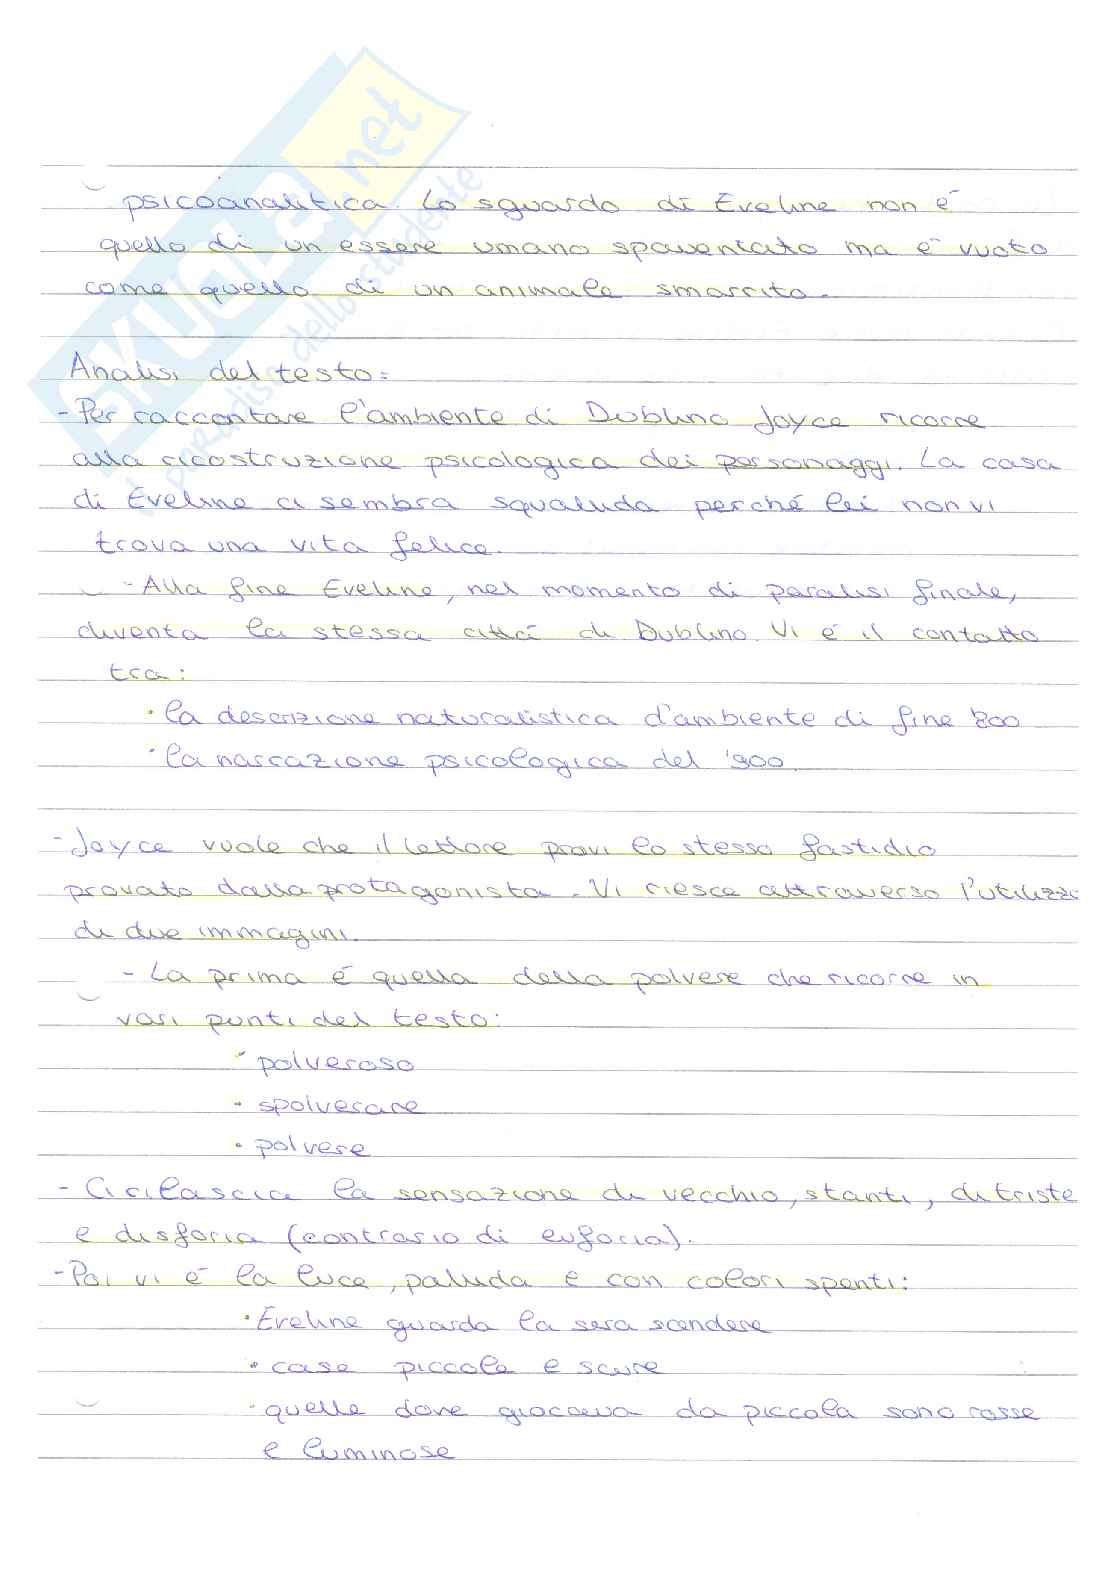 psicoanalitica. Lo sguardo di Eveline non é
quello di un essere umano spaventato ma é vuoto
come quello di un animale smarrito.
Analisi del testo:
- Per raccontare l'ambiente di Dublino Joyce ricorre
alla ricostruzione psicologica dei personaggi. La casa
di Eveline ci sembra squallida perché lei non vi
trova una vita felice.
- Alla fine Eveline, nel momento di paralisi finale,
diventa la stessa cittá di Dublino. Vi é il contatto
tra:
• la descrizione naturalistica d'ambiente di fine '800
• la narrazione psicologica del '900.
- Joyce vuole che il lettore provi lo stesso fastidio
provato dalla protagonista. Vi riesce attraverso l'utilizz
di due immagini.
- La prima é quella della polvere che ricorre in
vari punti del testo:
• polveroso
• spolverare
• polvere
- Ci rilascia la sensazione di vecchio, stanti, di triste
e disforia (contrario di euforia).
- Poi vi é la luce, pallida e con colori spenti:
• Eveline guarda la sera scendere
• case piccole e scure
• quelle dove giocava da piccola sono rosse
e luminose
SKUOLA.net
il paradiso dello studente